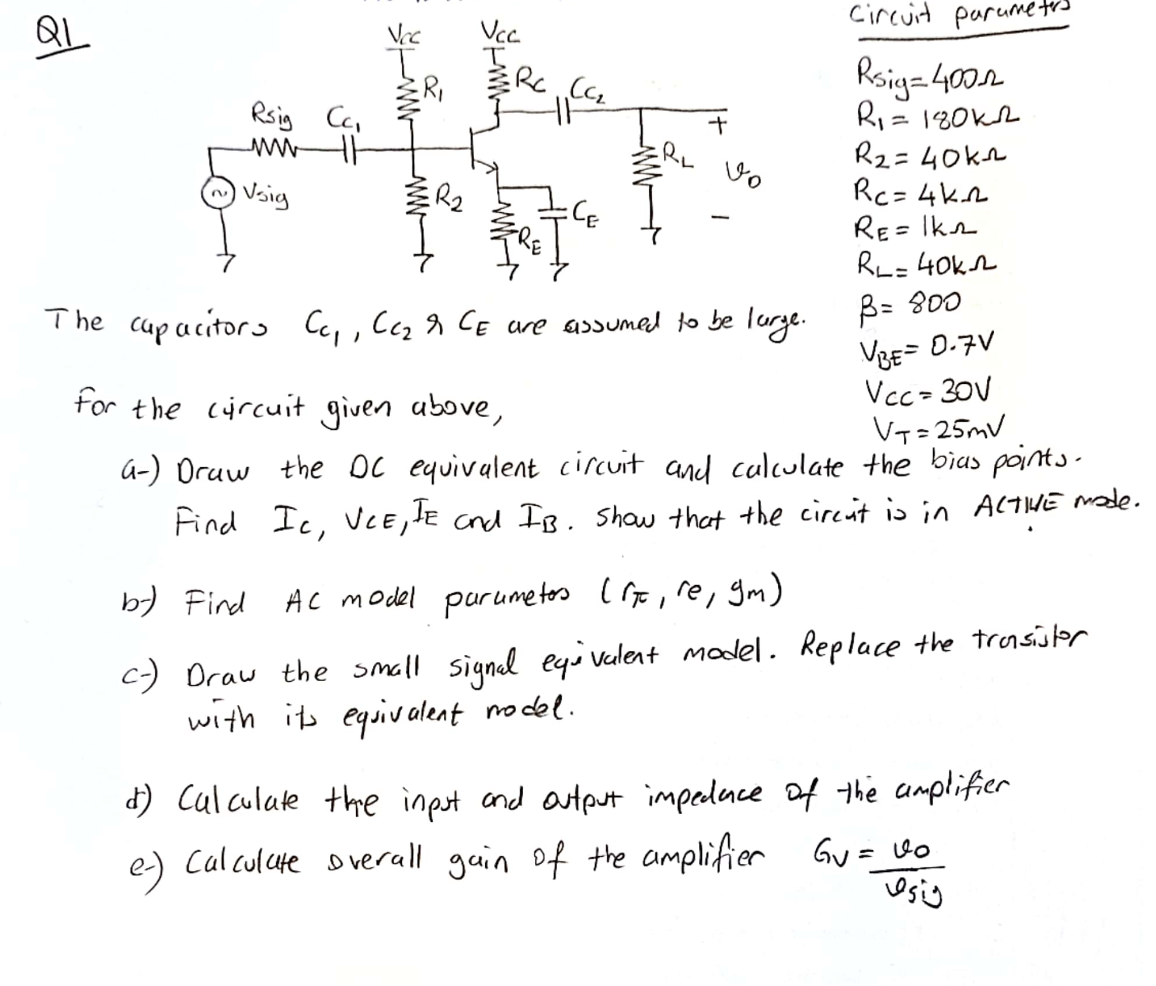 Q1
Circuit parameters
Vcc Vcc
R1 Rc Cc2
Rsig Cc1
Vsig R2 RE CE RL + vo -
Rsig=400Ω
R1 = 180kΩ
R2= 40kΩ
Rc= 4kΩ
RE= 1kΩ
RL= 40kΩ
β= 800
VBE= 0.7V
Vcc = 30V
VT = 25mV
The capacitors Cc1, Cc2 & CE are assumed to be large.
for the circuit given above,
a-) Draw the DC equivalent circuit and calculate the bias points.
Find Ic, VCE, IE and IB. Show that the circuit is in ACTIVE mode.
b-) Find AC model parameters (rπ, re, gm)
c-) Draw the small signal equivalent model. Replace the transistor
with its equivalent model.
d) Calculate the input and output impedance of the amplifier
e-) Calculate overall gain of the amplifier Gv = vo / vsig